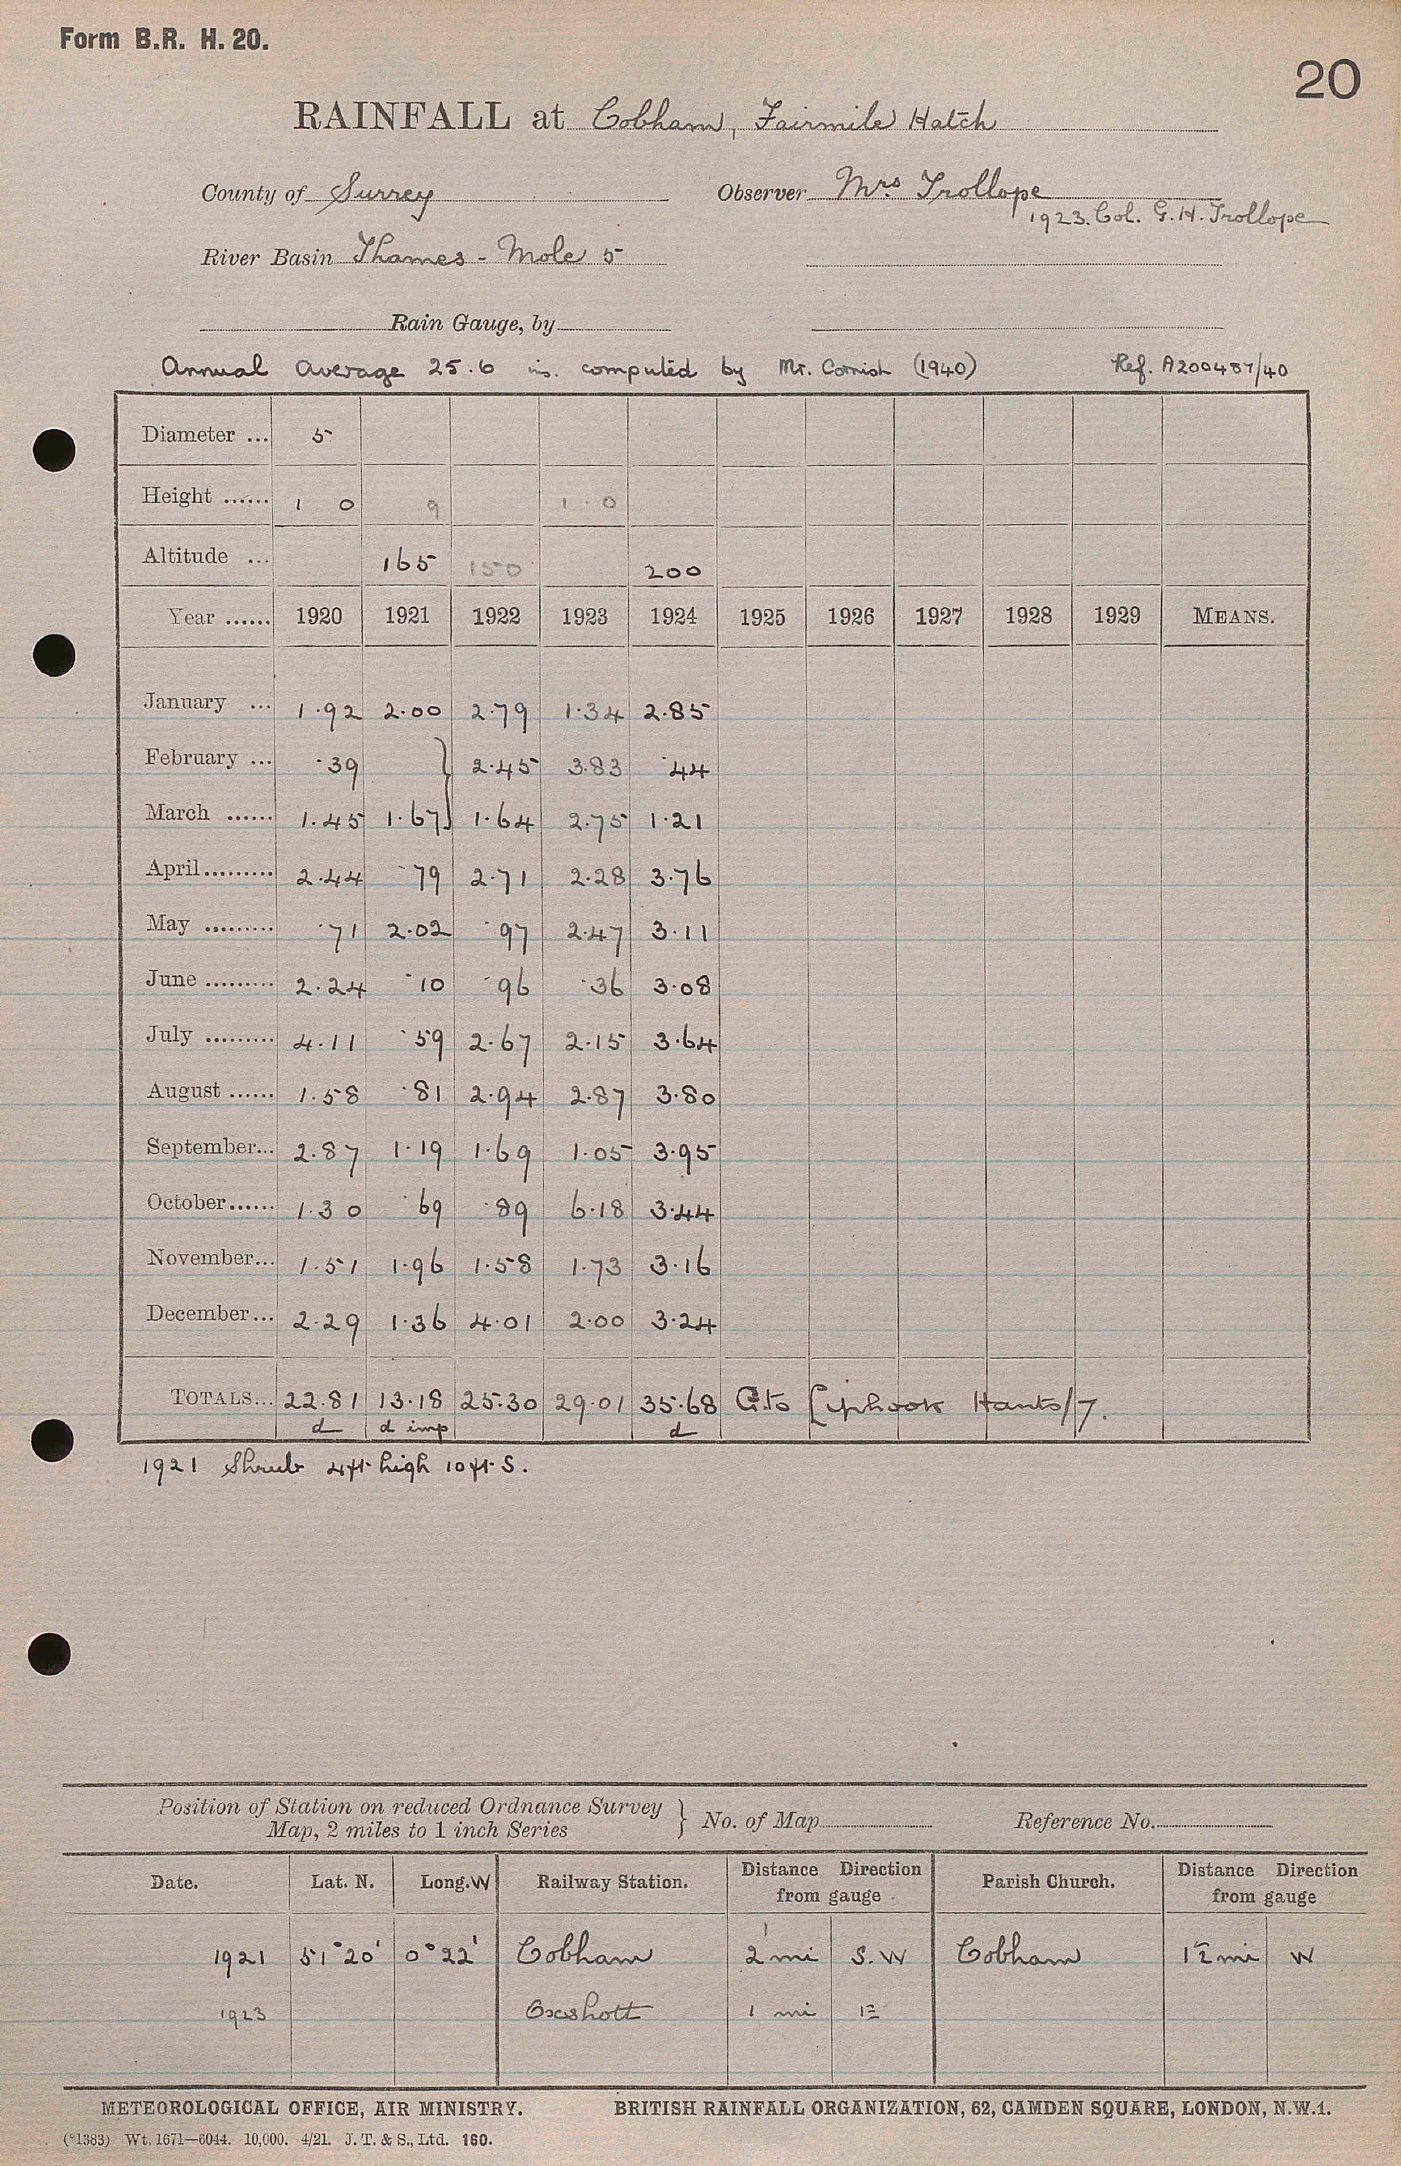 Form B.R. H. 20.
20
RAINFALL at Cobham, Fairmile Hatch
County of Surrey Observer Mrs Trollope
1923. Col. G. H. Trollope
River Basin Thames - Mole 5
Rain Gauge, by
Annual average 25.6 ins. computed by Mr. Cornish (1940) Ref. A200487/40
Diameter ... 5
Height ...... 1 0 9 1 . 0
Altitude ... 165 150 200
Year ...... 1920 1921 1922 1923 1924 1925 1926 1927 1928 1929 MEANS.
January ... 1.92 2.00 2.79 1.34 2.85
February ... .39 } 2.45 3.83 .44
March ...... 1.45 1.67 1.64 2.75 1.21
April ......... 2.44 .79 2.71 2.28 3.76
May ......... .71 2.02 .97 2.47 3.11
June ......... 2.24 .10 .96 .36 3.08
July ......... 4.11 .59 2.67 2.15 3.64
August ...... 1.58 .81 2.94 2.87 3.80
September... 2.87 1.19 1.69 1.05 3.95
October...... 1.30 .69 .89 6.18 3.44
November... 1.51 1.96 1.58 1.73 3.16
December... 2.29 1.36 4.01 2.00 3.24
TOTALS... 22.81 13.18 25.30 29.01 35.68 G. to Liphook Hants/7.
d d imp d
1921 Shrub 4 ft high 10 ft S.
Position of Station on reduced Ordnance Survey } No. of Map Reference No.
Map, 2 miles to 1 inch Series
Date. Lat. N. Long. W Railway Station. Distance Direction from gauge Parish Church. Distance Direction from gauge
1921 51°20' 0°22' Cobham 2 mi S.W Cobham 1½ mi W
1923 Oxshott 1 mi E
METEOROLOGICAL OFFICE, AIR MINISTRY. BRITISH RAINFALL ORGANIZATION, 62, CAMDEN SQUARE, LONDON, N.W.1.
(*1383) Wt. 1671—6044. 10,000. 4/21. J. T. & S., Ltd. 160.